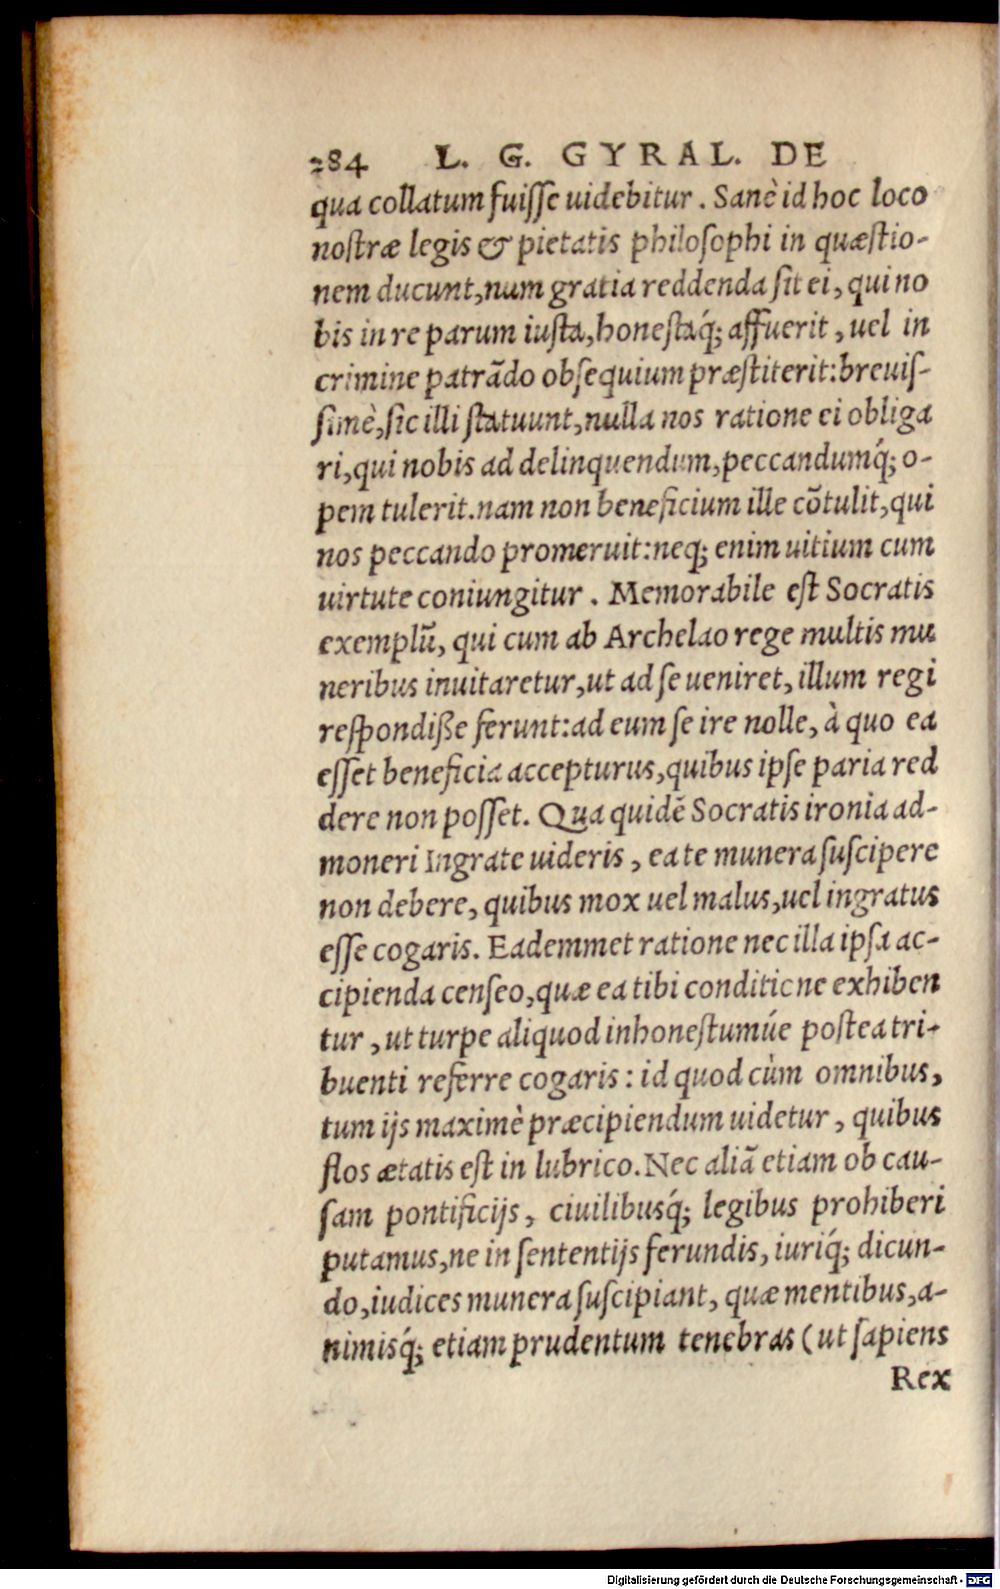 284 L. G. GYRAL. DE
qua collatum fuiſſe uidebitur. Sanè id hoc loco
noſtræ legis & pietatis philoſophi in quæſtio-
nem ducunt, num gratia reddenda ſit ei, qui no
bis in re parum iuſta, honeſtaq́; affuerit, uel in
crimine patrãdo obſequium præſtiterit: breuiſ-
ſimè, ſic illi ſtatuunt, nulla nos ratione ei obliga
ri, qui nobis ad delinquendum, peccandumq́; o-
pem tulerit. nam non beneficium ille cõtulit, qui
nos peccando promeruit: neq; enim uitium cum
uirtute coniungitur. Memorabile eſt Socratis
exemplũ, qui cum ab Archelao rege multis mu
neribus inuitaretur, ut ad ſe ueniret, illum regi
reſpondiße ferunt: ad eum ſe ire nolle, à quo ea
eſſet beneficia accepturus, quibus ipſe paria red
dere non poſſet. Qua quidẽ Socratis ironia ad-
moneri Ingrate uideris, ea te munera ſuſcipere
non debere, quibus mox uel malus, uel ingratus
eſſe cogaris. Eademmet ratione nec illa ipſa ac-
cipienda cenſeo, quæ ea tibi conditione exhiben
tur, ut turpe aliquod inhoneſtumúe poſtea tri-
buenti referre cogaris: id quod cùm omnibus,
tum ijs maximè præcipiendum uidetur, quibus
flos ætatis eſt in lubrico. Nec aliã etiam ob cau-
ſam pontificijs, ciuilibusq́; legibus prohiberi
putamus, ne in ſententijs ferundis, iuriq́; dicun-
do, iudices munera ſuſcipiant, quæ mentibus, a-
nimisq́; etiam prudentum tenebras (ut ſapiens
Rex
Digitalisierung gefördert durch die Deutsche Forschungsgemeinschaft - DFG